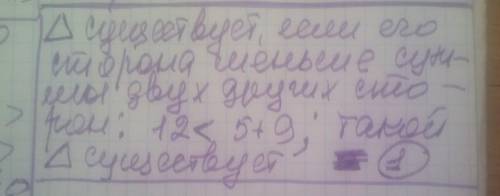 △ существует, если его
сторона меньше сум-
мы двух других сто-
рон: 12 < 5+9; такой
△ существует
1